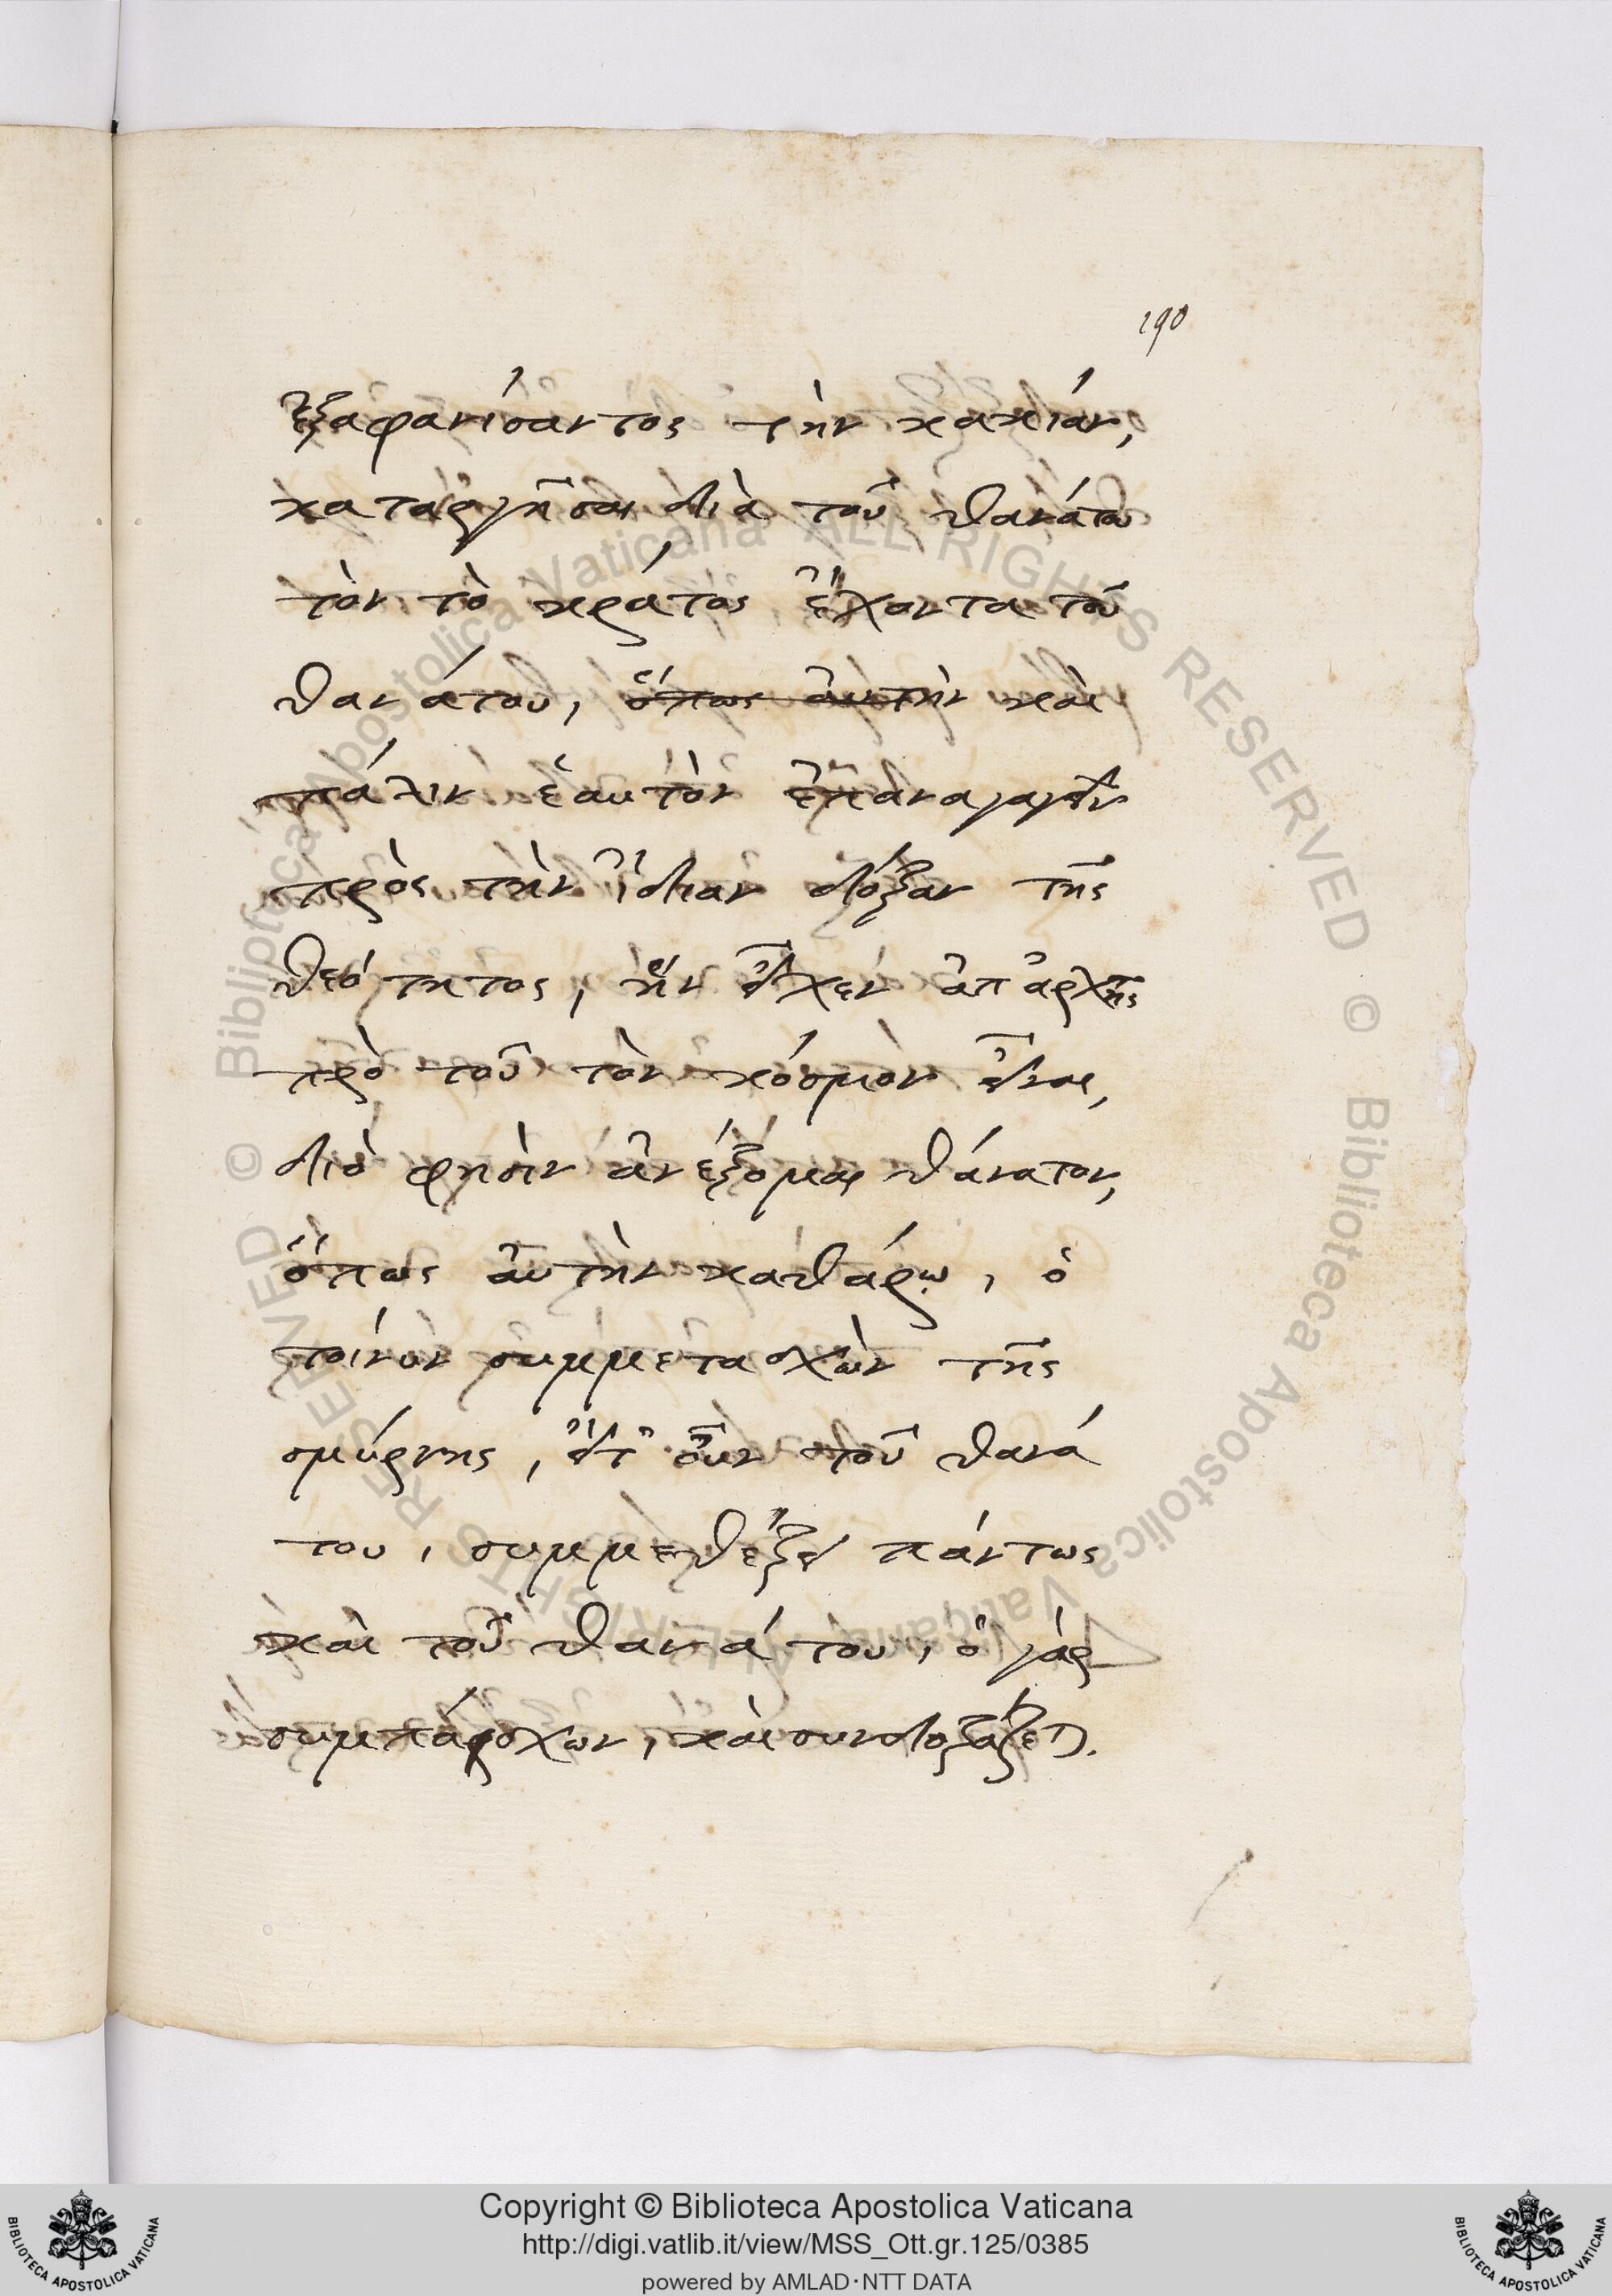 190
ἐξαφανίσαντος τὴν κακίαν,
καταργῆσαι διὰ τοῦ θανάτου
τὸν τὸ κράτος ἔχοντα τοῦ
θανάτου, ὅπως αὐτὴν καὶ
πάλιν ἑαυτὸν ἐπαναγαγεῖν
πρὸς τὴν ἰδίαν δόξαν τῆς
θεότητος, ἣν εἶχεν ἀπ ἀρχῆς
πρὸ τοῦ τὸν κόσμον εἶναι,
διό φησιν ἀνέξομαι θάνατον,
ὅπως αὐτὴν καθάρω, ὁ
τοίνυν συμμετασχὼν τῆς
σμύρνης, εἴτ' οὖν τοῦ θανά
του, συμμεθέξει πάντως
καὶ τοῦ θανάτου, ὁ γὰρ
συμπάσχων, καὶ συνδοξάζεται.
Copyright © Biblioteca Apostolica Vaticana
http://digi.vatlib.it/view/MSS_Ott.gr.125/0385
powered by AMLAD·NTT DATA
BIBLIOTECA APOSTOLICA VATICANA
BIBLIOTECA APOSTOLICA VATICANA
© Biblioteca Apostolica Vaticana ALL RIGHTS RESERVED
© Biblioteca Apostolica Vaticana ALL RIGHTS RESERVED